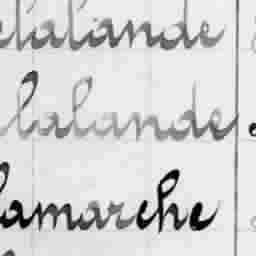 elalande
lalande
lamarche